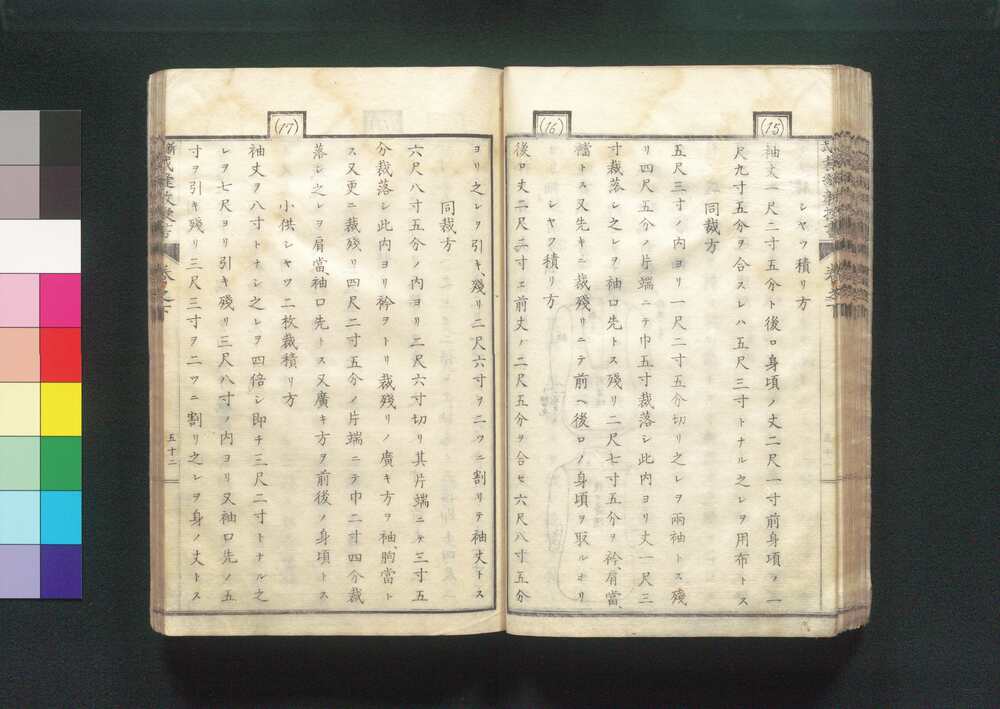 (15)
シヤツ積リ方
袖丈一尺二寸五分ト後ロ身頃ノ丈二尺一寸前身頃ヲ一
尺九寸五分ヲ合スレハ五尺三寸トナル之レヲ用布トス
同裁方
五尺三寸ノ内ヨリ一尺二寸五分切リ之レヲ兩袖トス殘
リ四尺五分ノ片端ニテ巾五寸裁落シ此内ヨリ丈一尺三
寸裁落シ之レヲ袖口先トス殘リ二尺七寸五分ヲ衿、肩當、
襠トス又先キニ裁殘リニテ前ヘ後ロノ身頃ヲ取ルナリ
(16)
シヤツ積リ方
後ロ丈二尺二寸エ前丈ノ二尺五分ヲ合セ六尺八寸五分
ヨリ之レヲ引キ、殘リ二尺六寸ヲ二ツニ割リテ袖丈トス
同裁方
六尺八寸五分ノ内ヨリ二尺六寸切リ其片端ニテ三寸五
分裁落シ此内ヨリ衿ヲトリ裁殘リノ廣キ方ヲ袖、胸當ト
ス又更ニ裁殘リ四尺二寸五分ノ片端ニテ巾二寸四分裁
落シ之レヲ肩當、袖口先トス又廣キ方ヲ前後ノ身頃トス
(17)
小供シヤツ二枚裁積リ方
袖丈ヲ八寸トナシ之レヲ四倍シ即チ三尺二寸トナル之
レヲ七尺ヨリ引キ殘リ三尺八寸ノ内ヨリ又袖口先ノ五
寸ヲ引キ殘リ三尺三寸ヲ二ツニ割リ之レヲ身ノ丈トス
五十二